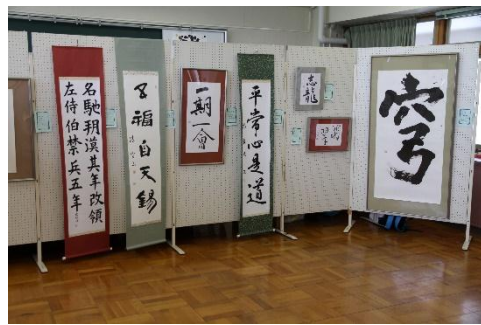 名馳朔漠其年改領
左侍伯禁兵五年
五福自天錫
一期一會
平常心是道
穹